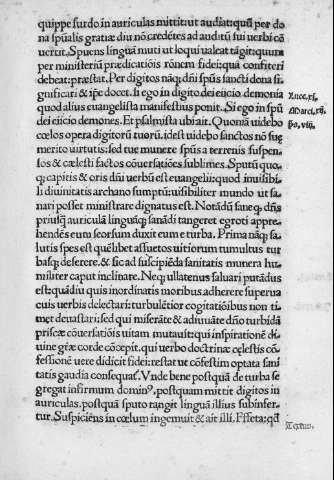 quippe surdo in auriculas mittit: ut audiat: quū per do
na spūalis gratiæ diu nō credētes ad auditū sui uerbi cō
uertit. Spuens linguā muti ut loqui ualeat tāgit: quum
per ministeriū prædicatiōis rōnem fidei: quā confiteri
debeat: præstat. Per digitos nāq; dñi spūs sancti dona si
gnificari & ip̄e docet. Si ego in digito dei eiicio demonia
quod alius euangelista manifestius ponit. Si ego in spū
dei eiicio demones. Et psalmista ubi ait. Quoniā uidebo
cœlos opera digitorū tuorū. idest uidebo sanctos nō suę
merito uirtutis: sed tuę munere spūs a terrenis suspen
sos & cælesti factos cōuersatiōe sublimes. Sputū quo,
q; capitis & oris dñi uerbū est euangelii: quod inuisibi,
li diuinitatis archano sumptū: uisibiliter mundo ut sa,
nari posset ministrare dignatus est. Notādū saneq; dñs
priusq̄ auriculā linguāq; sanādi tangeret egroti appre
hendēs eum seorsum duxit eum e turba. Prima nāq; sa
lutis spes est quēlibet assuetos uitiorum tumultus tur
basq; deserere. & sic ad suscipiēda sanitatis munera hu
militer caput inclinare. Neq; ullatenus saluari putādus
est: quādiu quis inordinatis moribus adherere superua
cuis uerbis delectari: turbulētior cogitatiōibus non ti,
met deuastari: sed qui miserāte & adiuuāte dño turbidā
priscæ cōuersatiōis uitam mutaust: qui inspiratione di
uine grēæ corde cōcepit. qui uerbo doctrinæ cęlestis cō
fessionē uere didicit fidei: restat ut cōfestim optata sani
tatis gaudia consequať. Vnde bene postquā de turba se
gregat infirmum dominꝰ. postquam mittit digitos in
auriculas. postquā sputo tangit linguā illius subinfer,
tur. Suspiciēns in cœlum ingemuit & ait illi. Effeta: qd̄
Luce. xi.
Marci. xii.
ps. viii.
Textus.